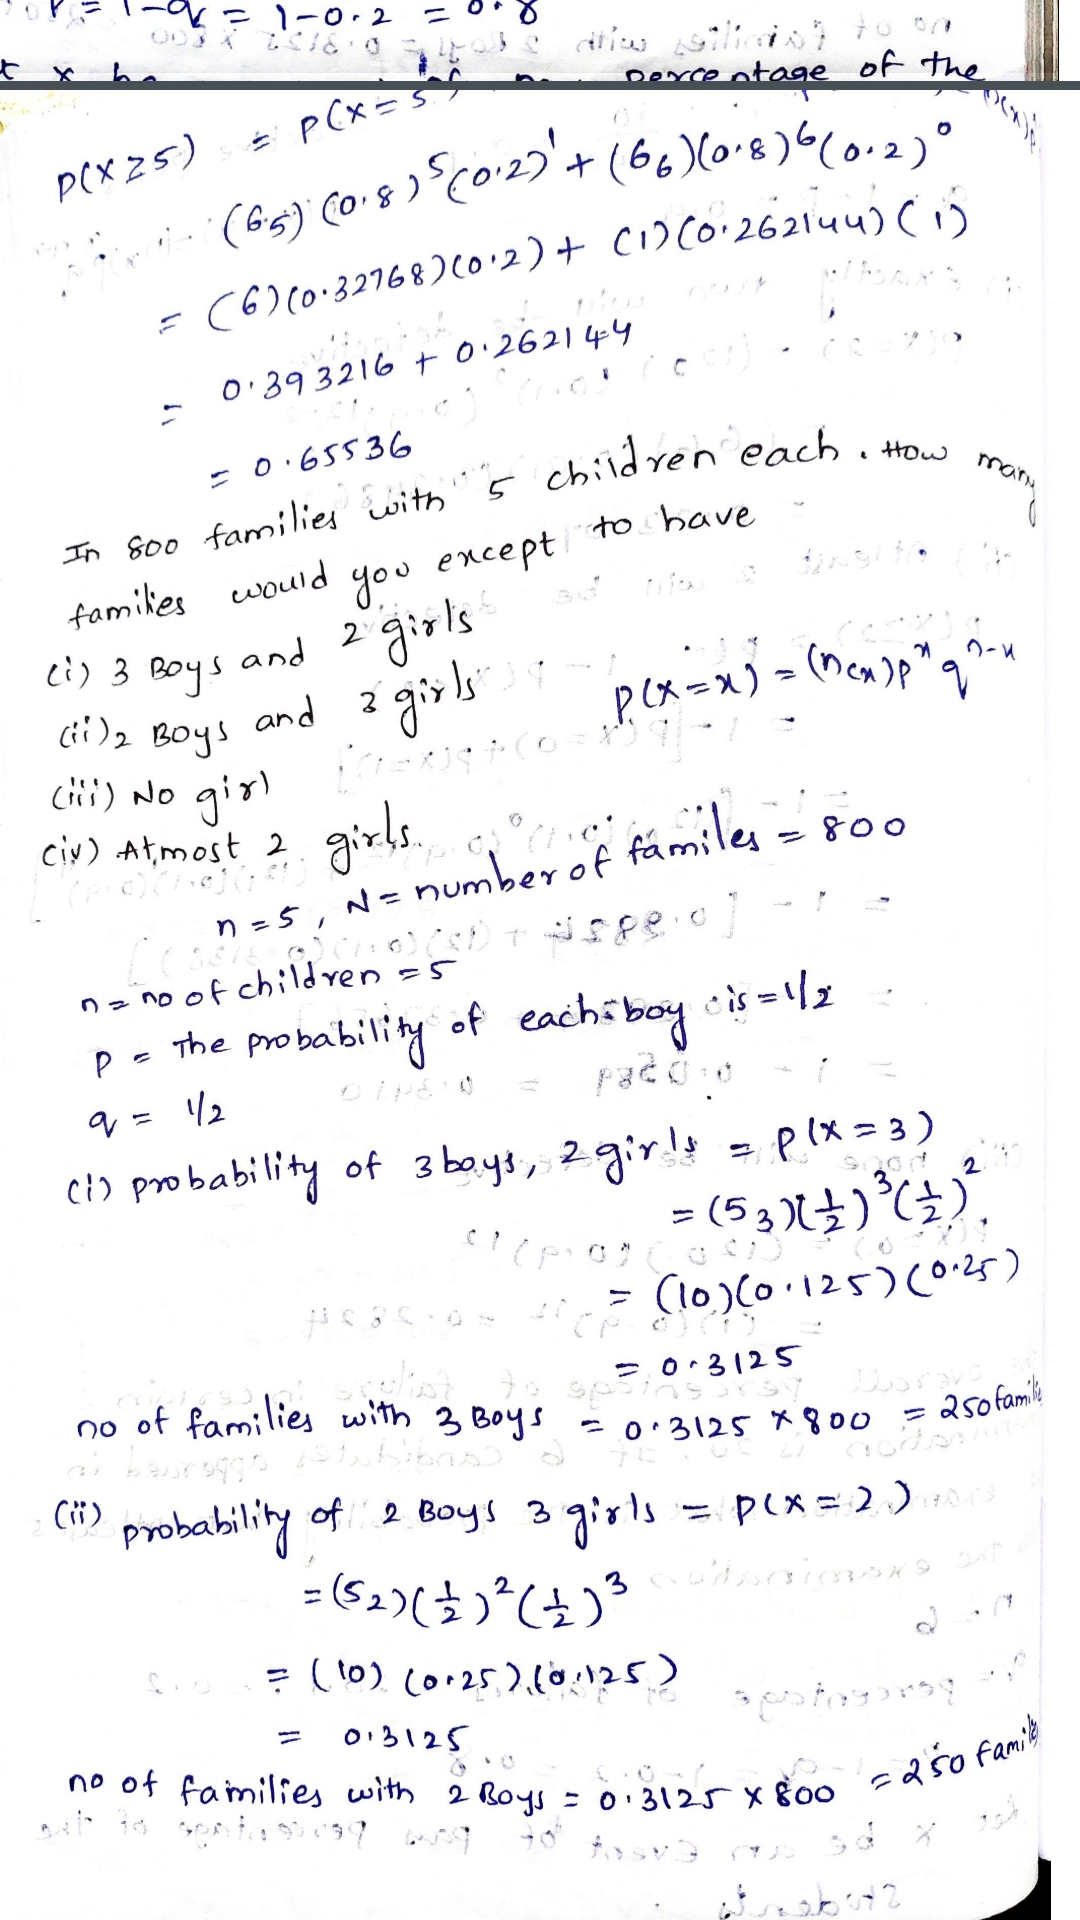 = 1-q = 1-0.2 = 0.8
percentage of the
P(X≥5) = P(X=5
(6 5) (0.8)^5 (0.2)^1 + (6 6)(0.8)^6 (0.2)^0
= (6)(0.32768)(0.2) + (1)(0.262144)(1)
= 0.393216 + 0.262144
= 0.65536
In 800 families with 5 children each. How many
families would you except to have
(i) 3 Boys and 2 girls
(ii) 2 Boys and 3 girls
P(X=x) = (n c x) p^x q^n-x
(iii) No girl
(iv) Atmost 2 girls.
n=5, N= number of familes = 800
n = no of children = 5
P = The probability of each boy is = 1/2
q = 1/2
(i) probability of 3 boys, 2 girls = P(X=3)
= (5 3)(1/2)^3 (1/2)^2
= (10)(0.125)(0.25)
= 0.3125
no of families with 3 Boys = 0.3125 × 800 = 250 familie
(ii) probability of 2 Boys 3 girls = P(X=2)
= (5 2)(1/2)^2 (1/2)^3
= (10) (0.25) (0.125)
= 0.3125
no of families with 2 Boys = 0.3125 × 800 = 250 familes